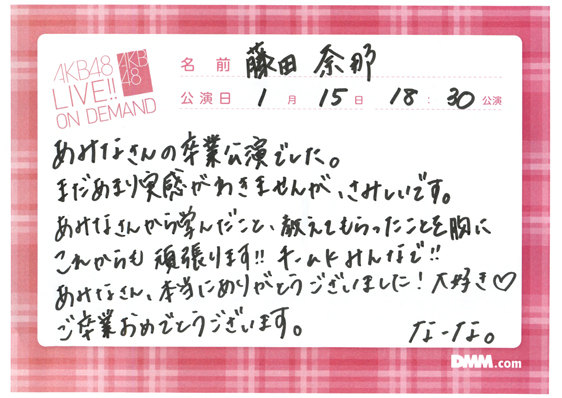 AKB48
LIVE!!
ON DEMAND
AKB
48
名前 藤田 奈那
公演日 1月 15日 18:30 公演
あみなさんの卒業公演でした。
まだあまり実感がわきませんが、さみしいです。
あみなさんから学んだこと、教えてもらったことを胸に
これからも頑張ります!! チームKみんなで!!
あみなさん、本当にありがとうございました! 大好き♡
ご卒業おめでとうございます。
なーな。
DMM.com